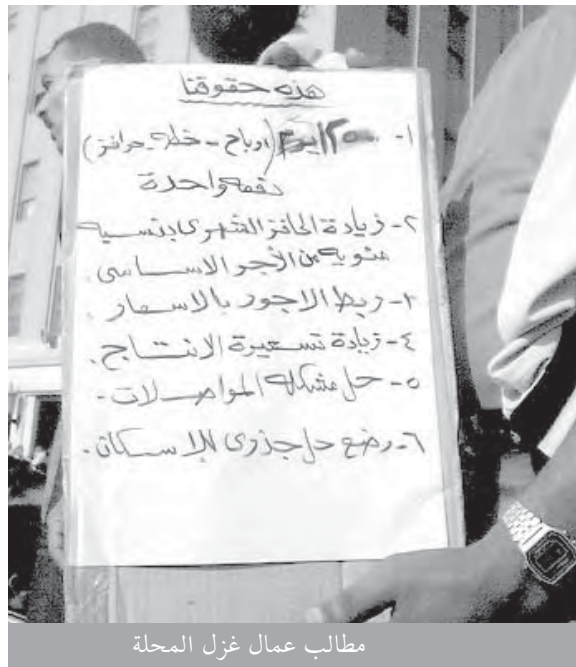 هذه حقوقنا
١- ٢٥٠ يوم (ارباح - خطة - حوافز)
دفعة واحدة
٢- زيادة الحافز الشهري بنسبة
مئوية من الأجر الاساسى.
٣- ربط الاجور بالاسعار.
٤- زيادة تسعيرة الانتاج.
٥- حل مشكلة المواصلات.
٦- وضع حل جذرى للإسكان.
مطالب عمال غزل المحلة